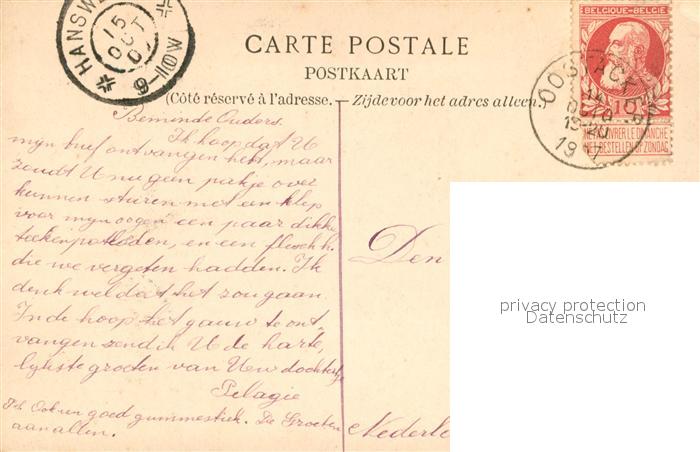 HANSWE
15
OCT
07
9-10V
CARTE POSTALE
POSTKAART
(Côté réservé à l'adresse. Zijde voor het adres alleen.)
BELGIQUE-BELGIË
10
OOSTACKER
14
OCT
19-20
19 7
NE PAS LIVRER LE DIMANCHE
NIET BESTELLEN OP ZONDAG
Beminde Ouders.
Ik hoop dat U
mijn brief ontvangen hebt, maar
zoudt U nu geen pakje over
kunnen sturen met een klep
voor mijn oogen een paar dikke
teekenpotloden, en een flesch h.
die we vergeten hadden. Ik
denk wel dat het zou gaan.
In de hoop het gauw te ont-
vangen zend ik U de harte,
lijkste groeten van Uew dochtertje
Pelagie
Ook een goed gummestiek. De Groeten
aan allen.
Den
Nederl
privacy protection
Datenschutz